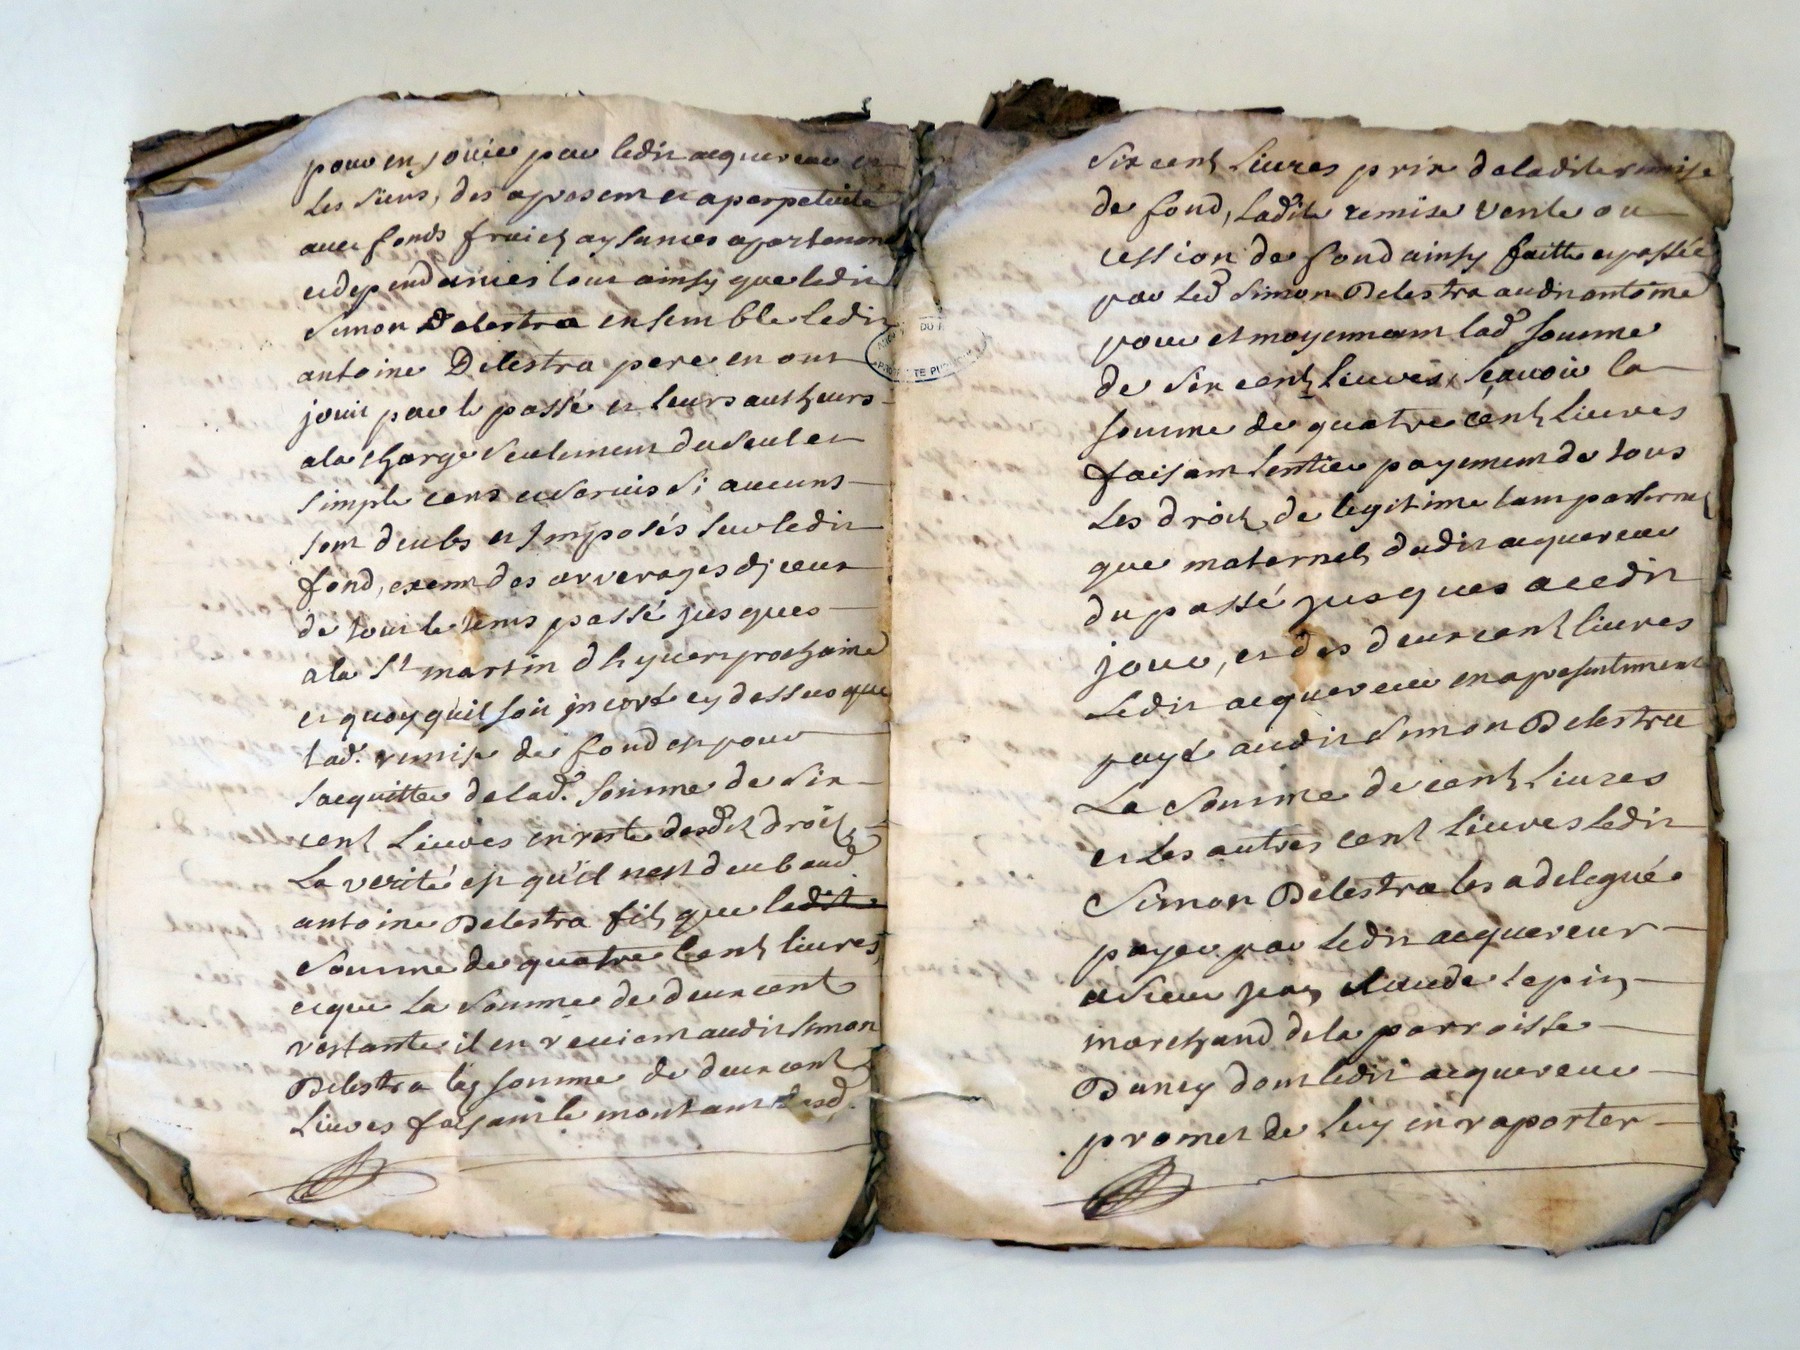 pour en jouir par ledit acquereur et
les siens, des apresent et a perpetuité
avec fonds fruicts aysances apartenan
et dependances tout ainsy que ledit
Simon Delestra ensemble ledit
antoine Delestra pere en ont
jouit par le passé et leurs autheurs
a la charge seulement du seul et
simple cens et servis si aucuns
sont deubs et Imposés sur ledit
fond, exemt des arrerages dj ceux
de tout le tems passé jusques
a la St martin dhyver prochaine
et quoy quil soit jncoré cy dessus que
lad. remise de fond est pour
sacquitter de lad. somme de six
cent Livres en reste desdts droits
La verité est qu'il nest deub aud
antoine Delestra fils que ledit
somme de quatre Cent livres,
et que La somme de deux cent
restante il en revient audit simon
Delestra lay somme de deux cent
Livres faisant le montant desd.
Six cent Livres prix de ladite remise
de fond, Ladite remise vente ou
cession de fond ainsy faitte et passée
par Led Simon Delestra audit antoine
pour et moyennant lad somme
de six cent Livres, sçavoir la
somme de quatre cent Livres
faisant lentier payement de tous
Les droits de legitime tant paternel
que maternels dudit acquereur
du passé jusques a cedit
jour, et des deux cent livres
Ledit acquereur en a presentement
payé audit Simon Delestra
La Somme de cent Livres
et Les autres cent livres Ledit
Simon Delestra les a delegué
payer par Ledit acquereur
a Sieur jean claude lepin
marchand de la parroisse
Dancy dont ledit acquereur
promet de luy en raporter
DU
PROPRIÉTÉ PUBLIQUE